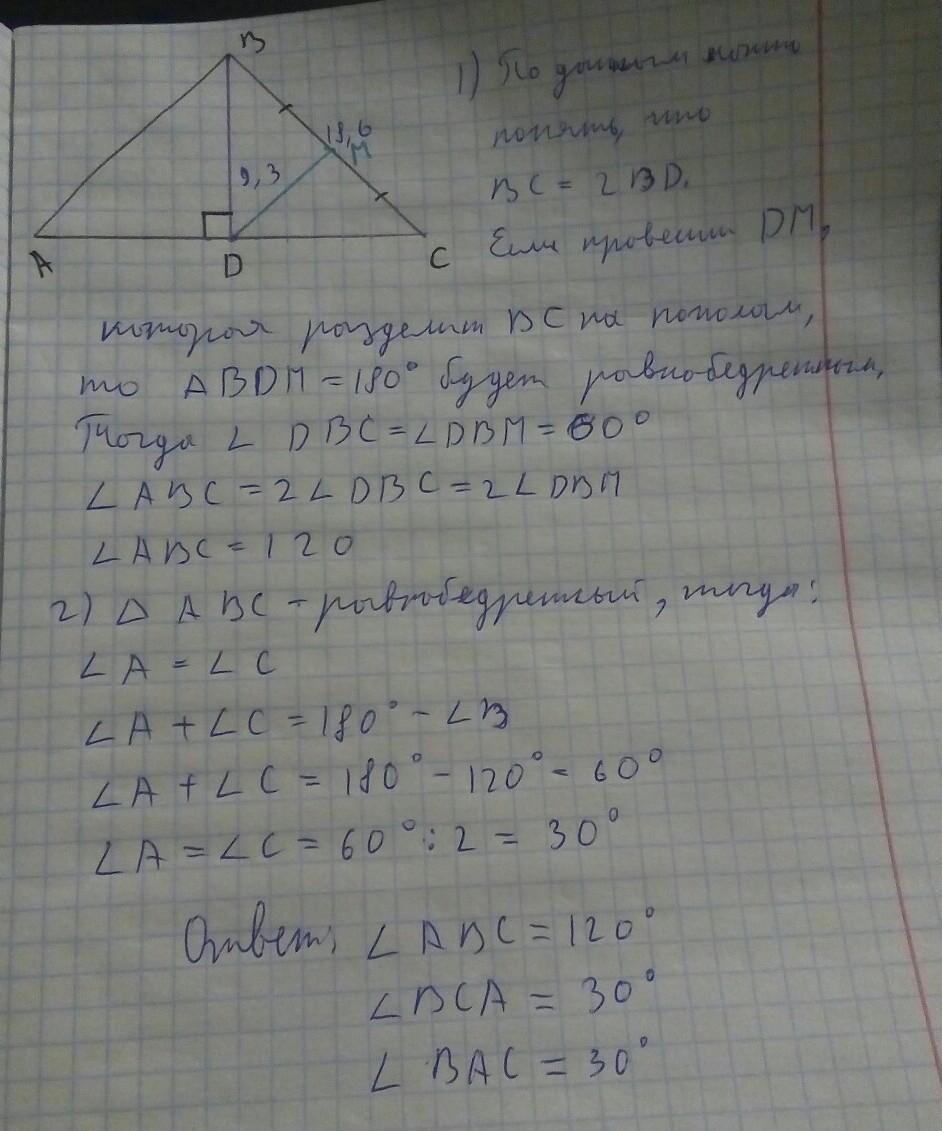 B
18,6
M
9,3
A
D
C
1) По данным можно
понять, что
BC = 2BD.
Если провести DM,
которая разделит BC на пополам,
то ΔBDM = 180° будет равнобедренным,
Тогда ∠ DBC = ∠DBM = 60°
∠ABC = 2∠DBC = 2∠DBM
∠ABC = 120
2) Δ ABC - равнобедренный, тогда:
∠A = ∠C
∠A + ∠C = 180° - ∠B
∠A + ∠C = 180° - 120° = 60°
∠A = ∠C = 60° : 2 = 30°
Ответ: ∠ABC = 120°
∠BCA = 30°
∠BAC = 30°